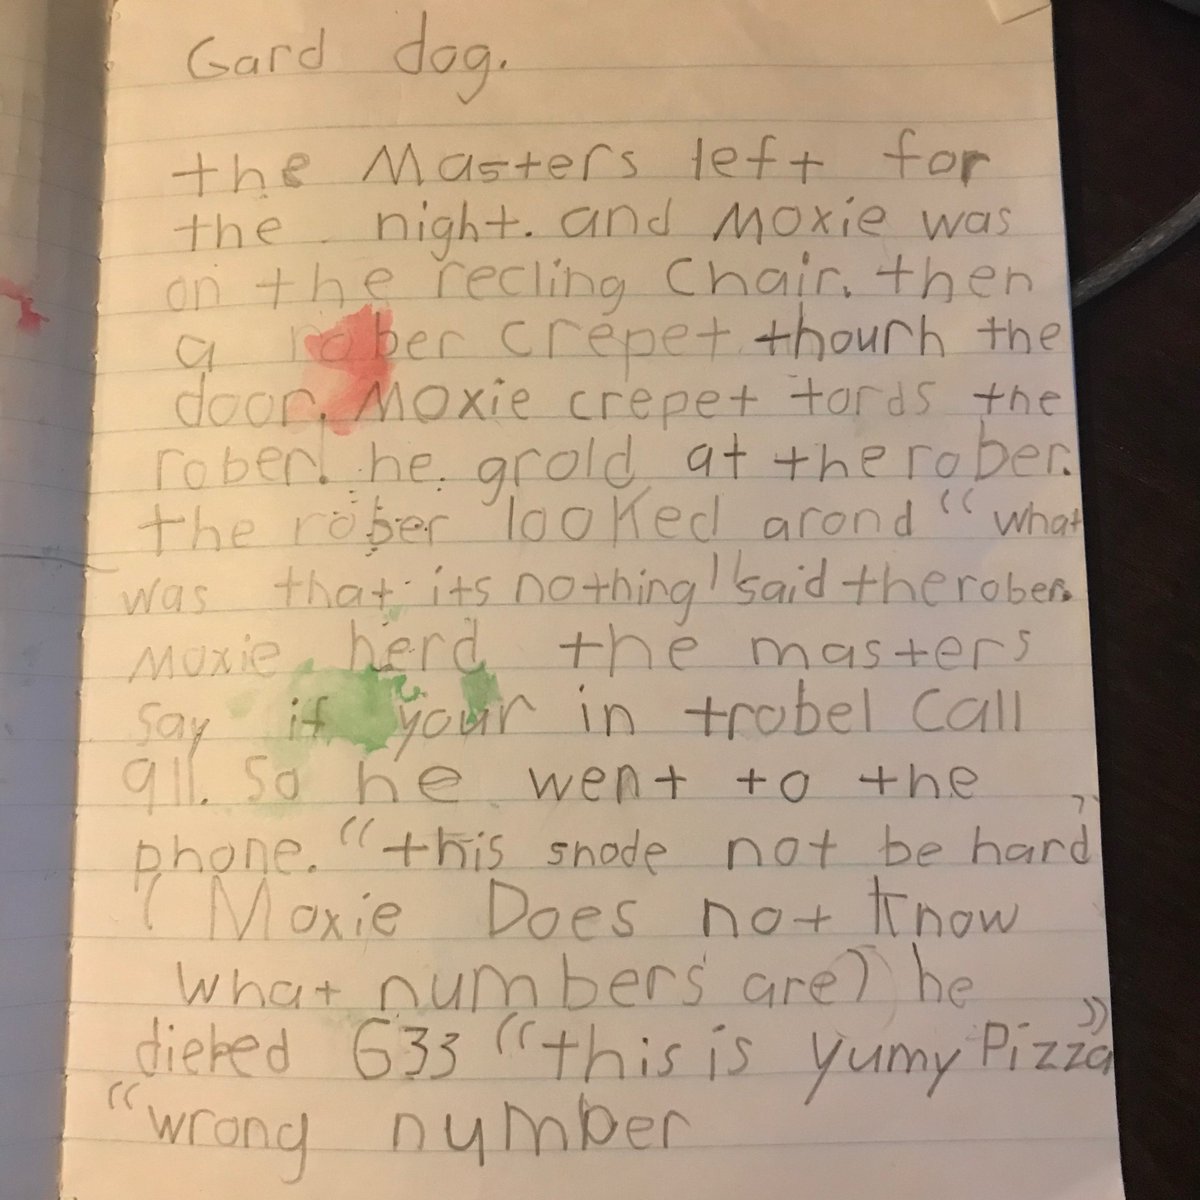 Gard dog.
the Masters left for
the night. and Moxie was
on the recling Chair. then
a rober crepet thourh the
door. Moxie crepet tords the
rober! he grold at the rober.
the rober looked arond "what
was that its nothing" said the rober.
Moxie herd the masters
say if your in trobel Call
911. So he went to the
phone. "this shode not be hard"
(Moxie Does not know
what numbers are) he
dieked 633 "this is yumy Pizza"
"wrong number